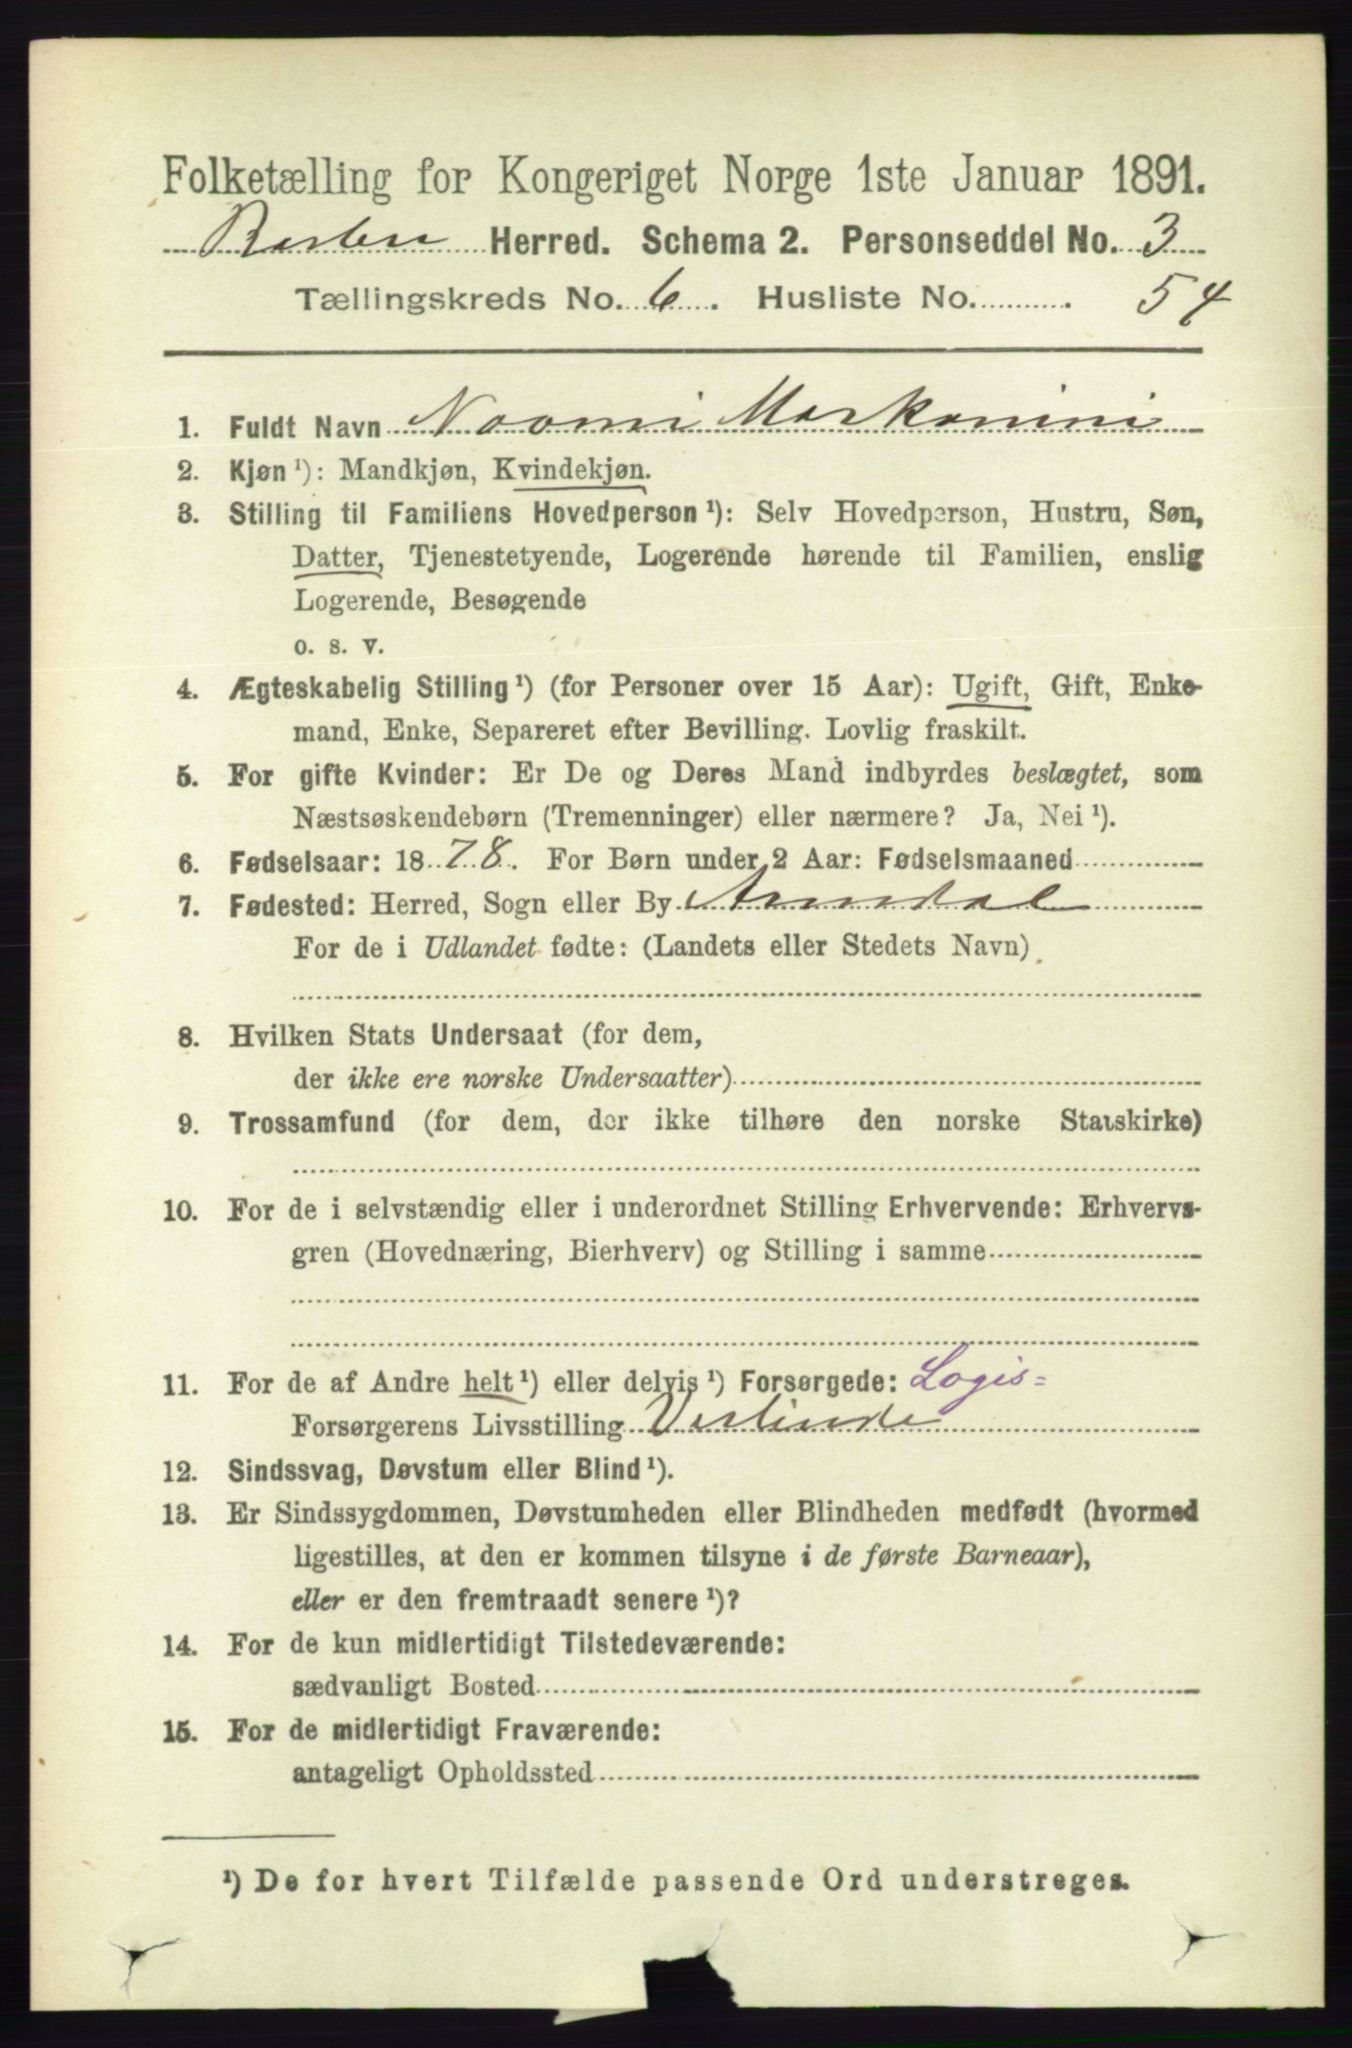 Folketælling for Kongeriget Norge 1ste Januar 1891.
Herred. Schema 2. Personseddel No. 3
Tællingskreds No. 6. Husliste No. 54
1. Fuldt Navn Noomi Markonini
2. Kjøn ¹): Mandkjøn, Kvindekjøn.
3. Stilling til Familiens Hovedperson ¹): Selv Hovedperson, Hustru, Søn,
Datter, Tjenestetyende, Logerende hørende til Familien, enslig
Logerende, Besøgende
o. s. v.
4. Ægteskabelig Stilling ¹) (for Personer over 15 Aar): Ugift, Gift, Enke-
mand, Enke, Separeret efter Bevilling. Lovlig fraskilt.
5. For gifte Kvinder: Er De og Deres Mand indbyrdes beslægtet, som
Næstsøskendebørn (Tremenninger) eller nærmere? Ja, Nei ¹).
6. Fødselsaar: 1878. For Børn under 2 Aar: Fødselsmaaned
7. Fødested: Herred, Sogn eller By Arendal
For de i Udlandet fødte: (Landets eller Stedets Navn)
8. Hvilken Stats Undersaat (for dem,
der ikke ere norske Undersaatter)
9. Trossamfund (for dem, der ikke tilhøre den norske Statskirke)
10. For de i selvstændig eller i underordnet Stilling Erhvervende: Erhvervs-
gren (Hovednæring, Bierhverv) og Stilling i samme
11. For de af Andre helt ¹) eller delvis ¹) Forsørgede: Logis=
Forsørgerens Livsstilling Vertinde
12. Sindssvag, Døvstum eller Blind ¹).
13. Er Sindssygdommen, Døvstumheden eller Blindheden medfødt (hvormed
ligestilles, at den er kommen tilsyne i de første Barneaar),
eller er den fremtraadt senere ¹)?
14. For de kun midlertidigt Tilstedeværende:
sædvanligt Bosted
15. For de midlertidigt Fraværende:
antageligt Opholdssted
¹) De for hvert Tilfælde passende Ord understreges.